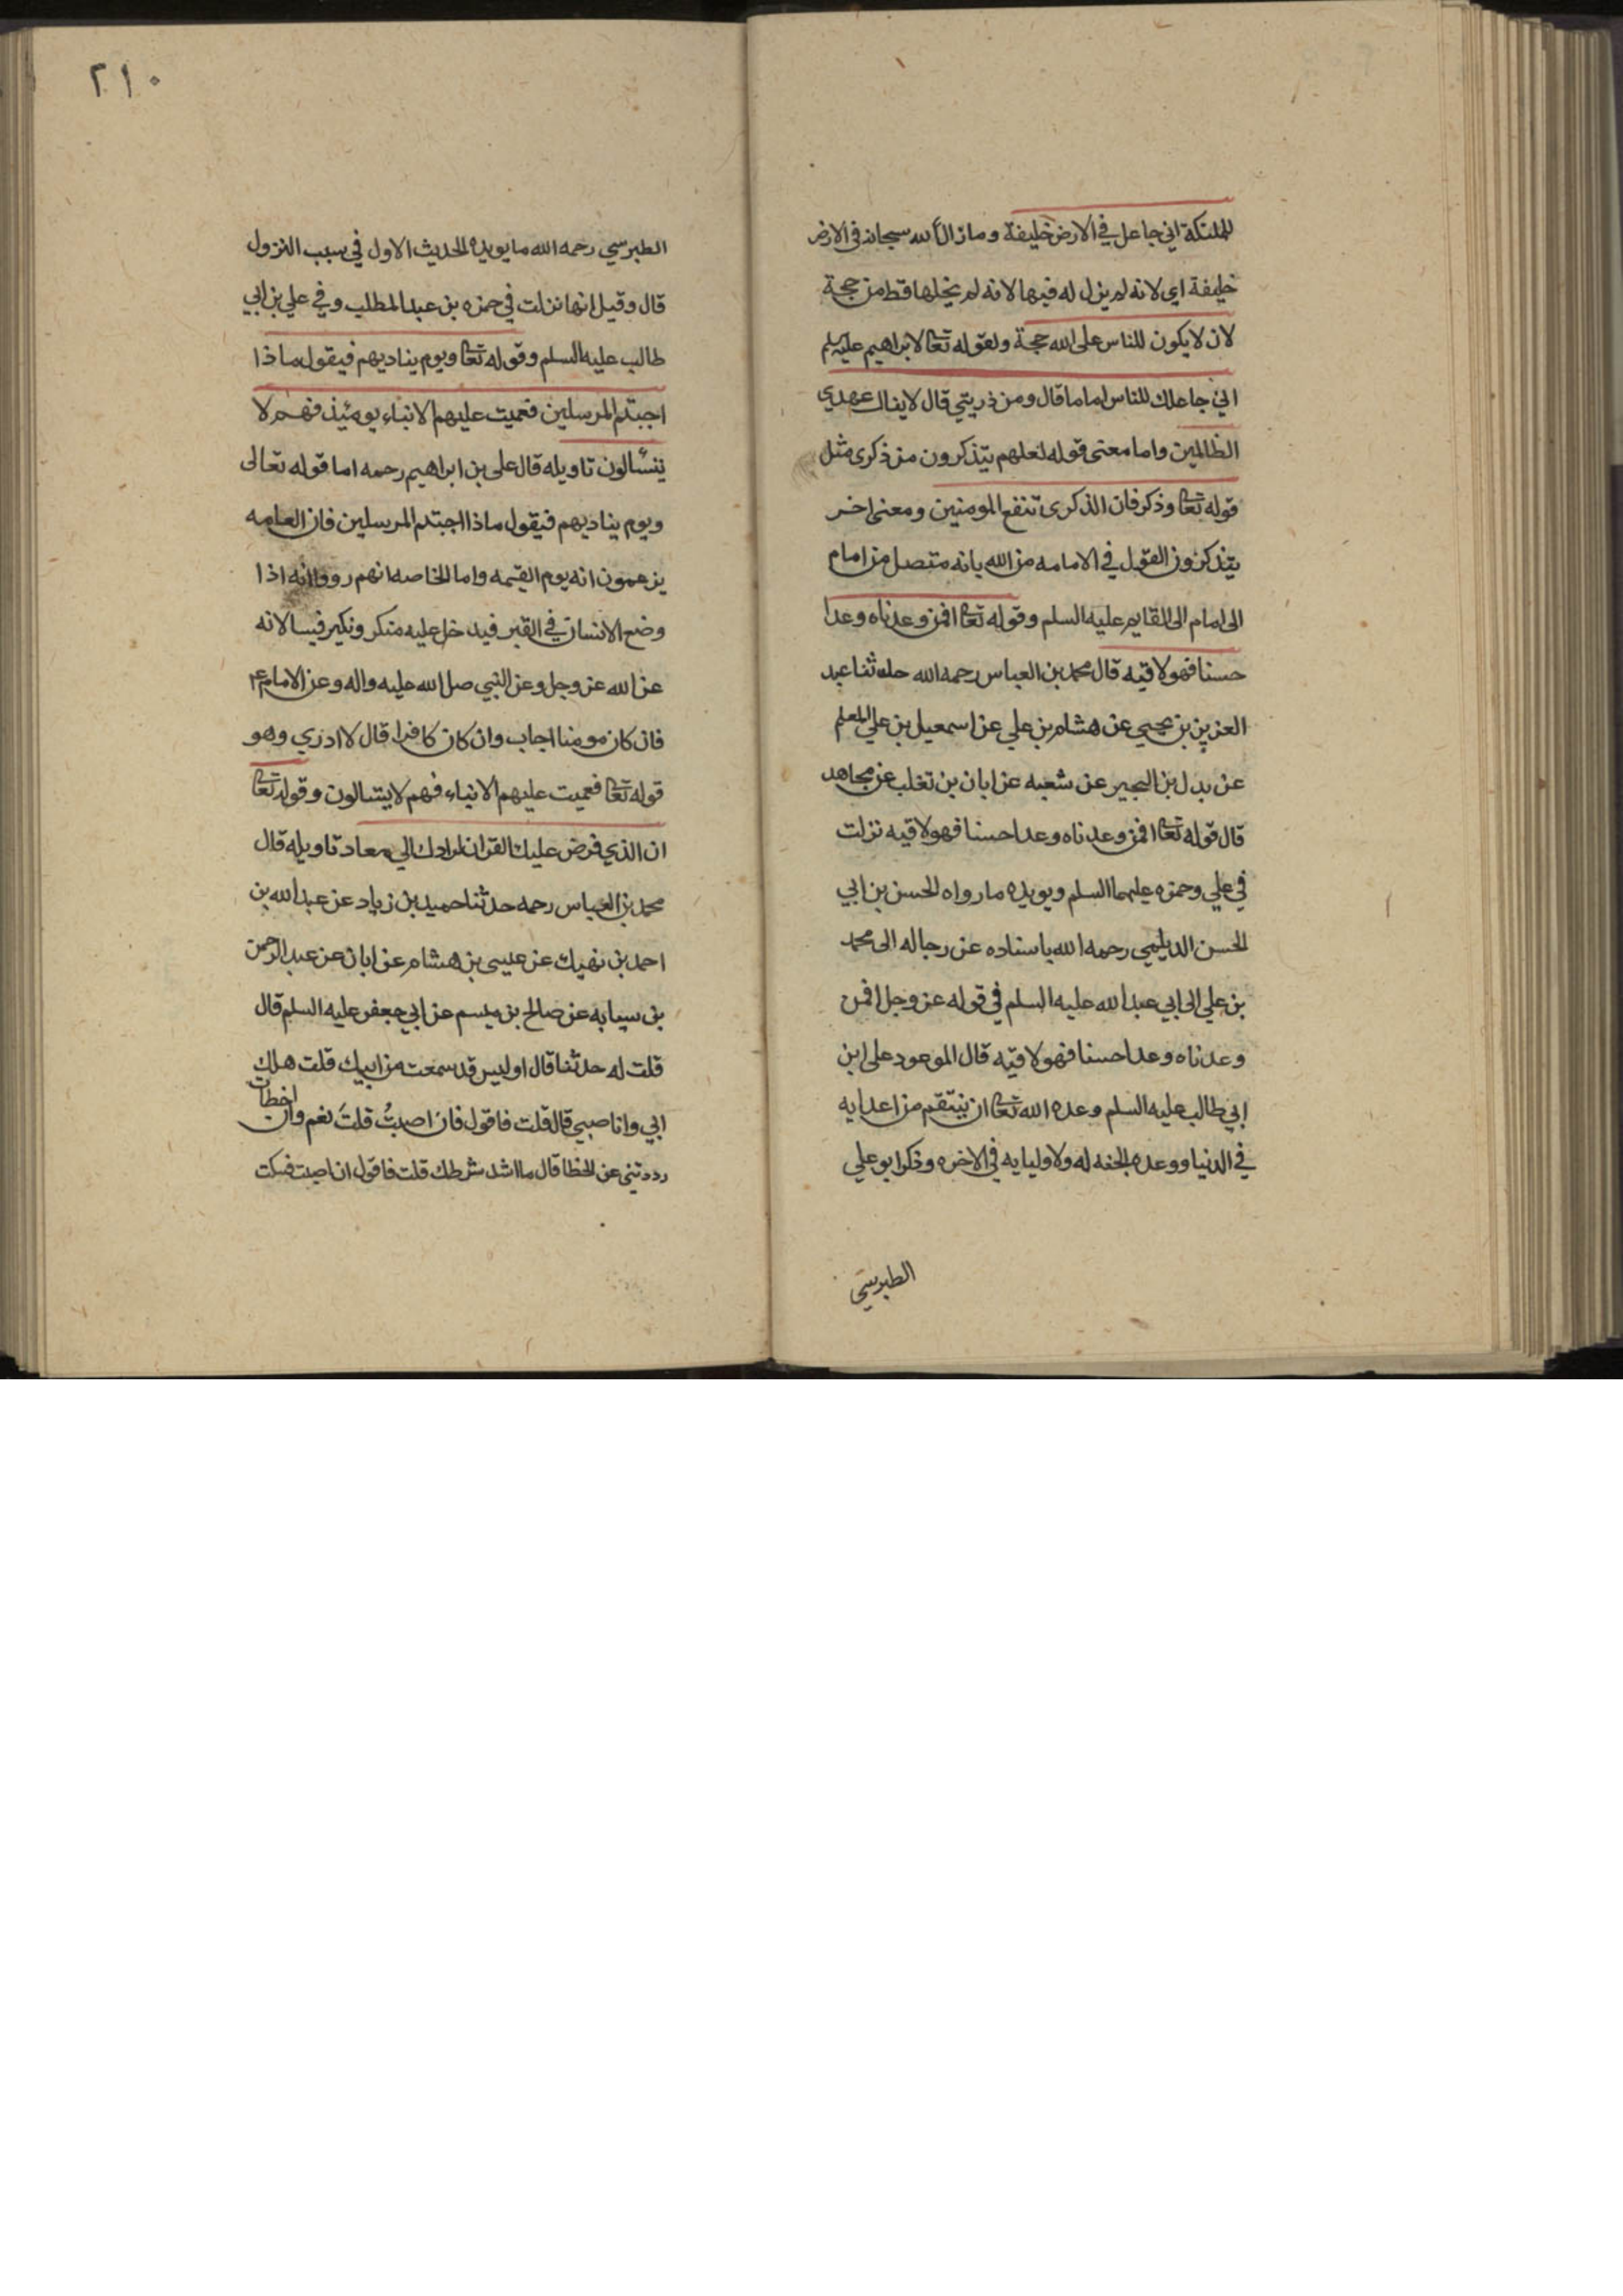 للملئكة اني جاعل في الارض خليفة وما زال الله سبحانه في الارض
خليفة اي لانه لم يزل له فيها لانه لم يخلها قط من حجة
لان لا يكون للناس على الله حجة ولقوله تعا لابراهيم عليه السلم
اني جاعلك للناس اماما قال ومن ذريتي قال لا ينال عهدي
الظالمين واما معنى قوله لعلهم يتذكرون من ذكرى مثل
قوله تعا وذكر فان الذكرى تنفع المومنين ومعنى اخر
يتذكرون القول في الامامه من الله بانه متصل من امام
الى امام الى القايم عليه السلم وقوله تعا افمن وعدناه وعدا
حسنا فهو لاقيه قال محمد بن العباس رحمه الله حدثنا عبد
العزيز بن يحيي عن هشام بن علي عن اسمعيل بن علي المعلم
عن بدل بن البحير عن شعبه عن ابان بن تغلب عن مجاهد
قال قوله تعا افمن وعدناه وعدا حسنا فهو لاقيه نزلت
في علي وحمزه عليهما السلم ويويده ما رواه الحسن بن ابي
الحسن الديلمي رحمه الله باسناده عن رجاله الى محمد
بن علي الى ابي عبد الله عليه السلم في قوله عز وجل افمن
وعدناه وعدا حسنا فهو لاقيه قال الموعود على ابن
ابي طالب عليه السلم وعده الله تعا ان ينتقم من اعدايه
في الدنيا ووعده الجنه له ولاوليايه في الاخره وذكر ابو علي
الطبرسي
٢١٠
الطبرسي رحمه الله ما يويد الحديث الاول في سبب النزول
قال وقيل انها نزلت في حمزه بن عبد المطلب وفي علي بن ابي
طالب عليه السلم وقوله تعا ويوم يناديهم فيقول ماذا
اجبتم المرسلين فعميت عليهم الانباء يومئذ فهم لا
يتسالون تاويله قال على بن ابراهيم رحمه اما قوله تعالى
ويوم يناديهم فيقول ماذا اجبتم المرسلين فان العامه
يزعمون انه يوم القيمه واما الخاصه انهم رووا انه اذا
وضع الانسان في القبر فيدخل عليه منكر ونكير فيسالانه
عن الله عز وجل وعن النبي صل الله عليه واله وعن الامام ع
فان كان مومنا اجاب وان كان كافرا قال لا ادري وهو
قوله تعا فعميت عليهم الانباء فهم لا يتسالون وقوله تعا
ان الذي فرض عليك القران لرادك الي معاد تاويله قال
محمد بن العباس رحمه حدثنا حميد بن زياد عن عبد الله بن
احمد بن نهيك عن عيسى بن هشام عن ابان عن عبد الرحمن
بن سيابه عن صالح بن ميسم عن ابي جعفر عليه السلم قال
قلت له حدثنا قال اوليس قد سمعت من ابيك قلت هلك
ابي وانا صبي قال قلت فاقول فان اصبتُ قلتَ نعم وان اخطات
رددتني عن الخطا قال ما اشد شرطك قلت فاقول ان اصبت فسكت